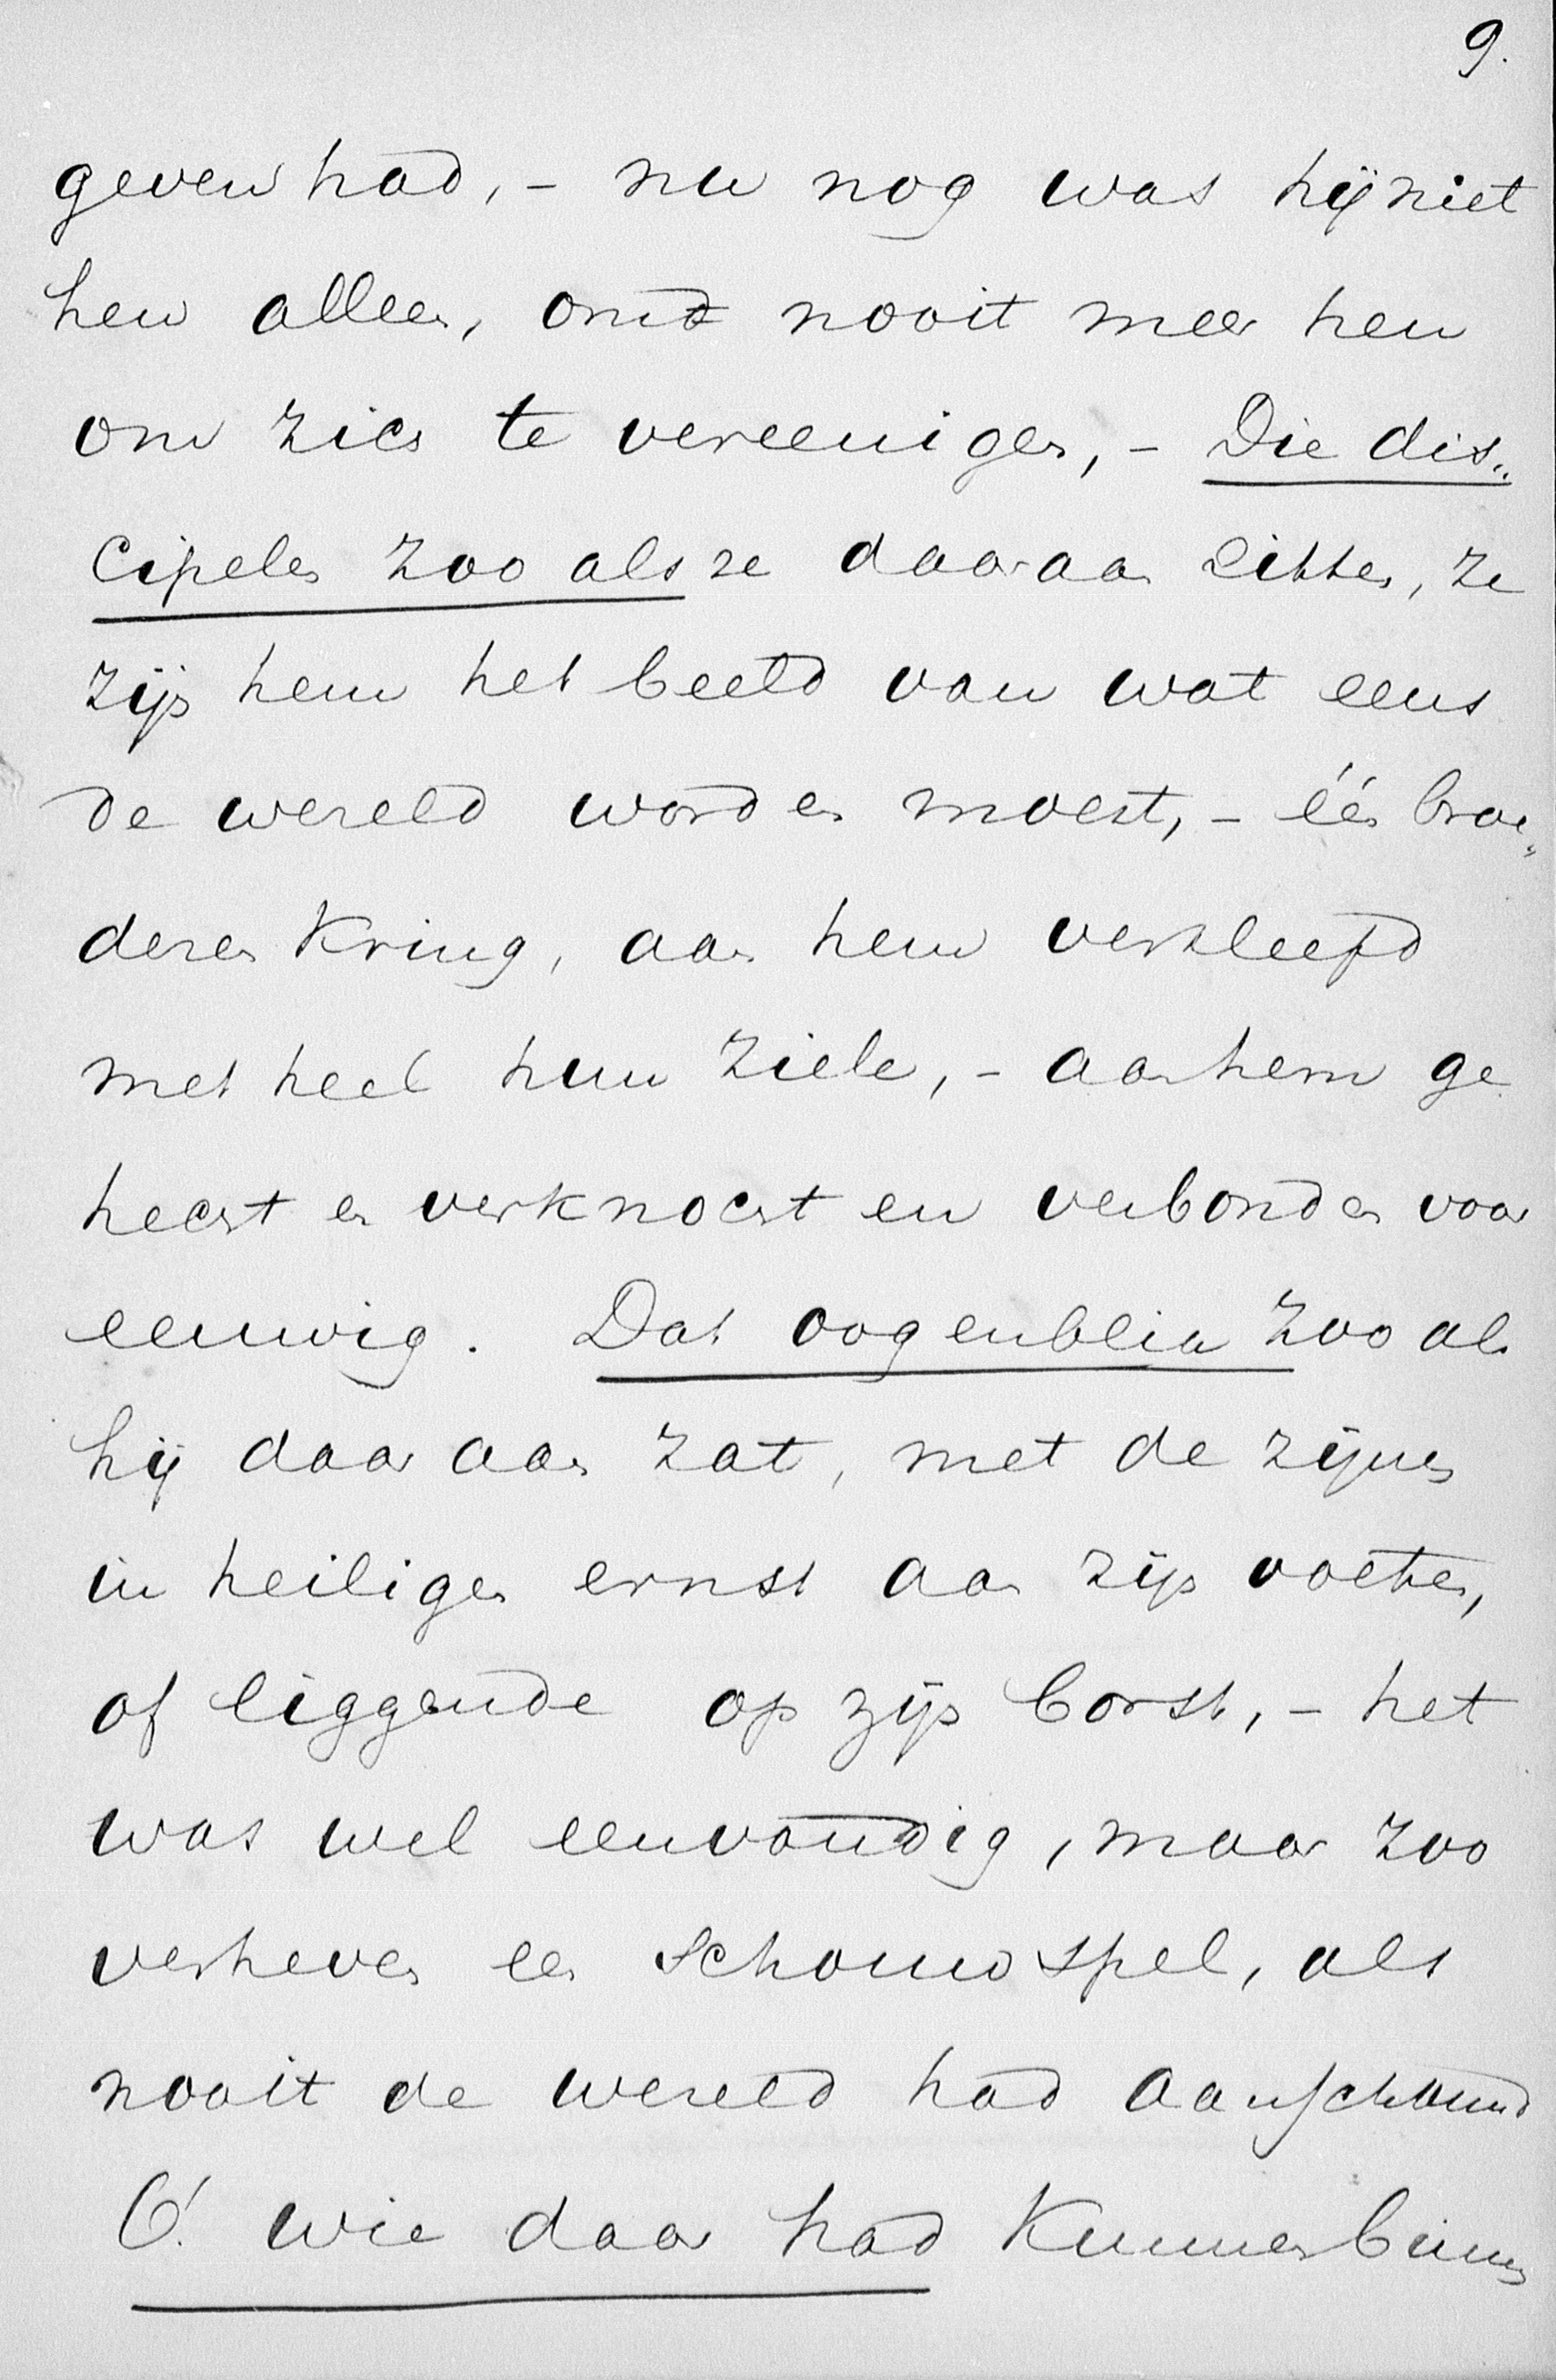 9.
geven had, - nu nog was hij niet
hen allen, om nooit meer hen
om zich te vereenigen, - Die dis„
cipelen zoo als ze daar aan zitten, ze
zijn hem het beeld van wat eens
de wereld worden moest, - één broe„
deren kring, aan hem verkleefd
met heel hun ziele, - aan hem ge
hecht en verknocht en verbonden voor
eeuwig. Dat oogenblik zoo als
hij daar aan zat, met de zijnen
in heiligen ernst aan zijn voeten,
of liggende op zijn borst, - het
was wel eenvoudig, maar zoo
verheven een schouwspel, als
nooit de wereld had aanschouwd
O! wie daar had kunnen binnen